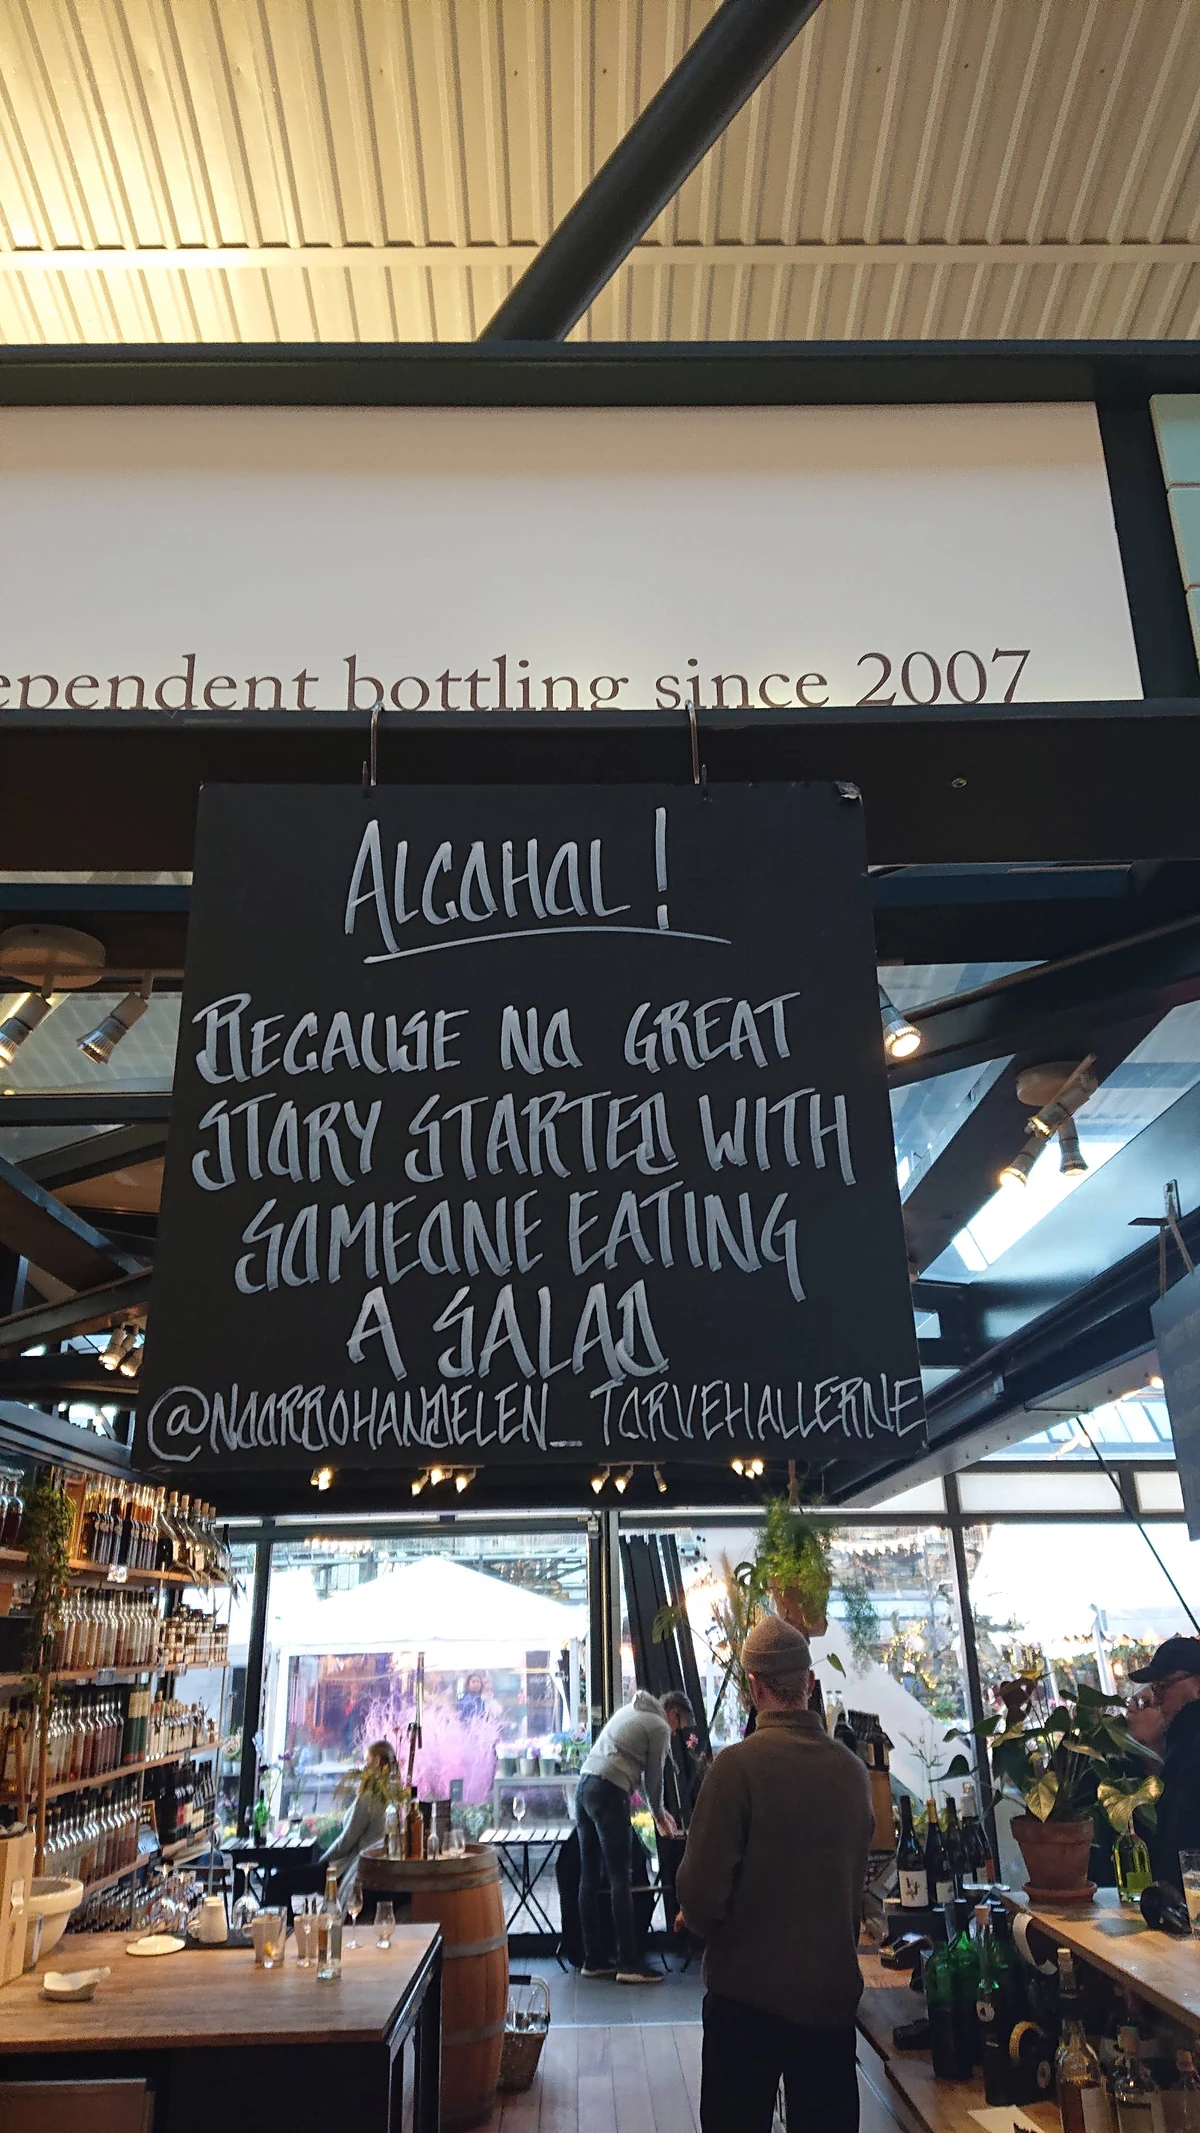 ependent bottling since 2007
ALCOHOL!
BECAUSE NO GREAT
STORY STARTED WITH
SOMEONE EATING
A SALAD
@NOORBOHANDELEN_TORVEHALLERNE